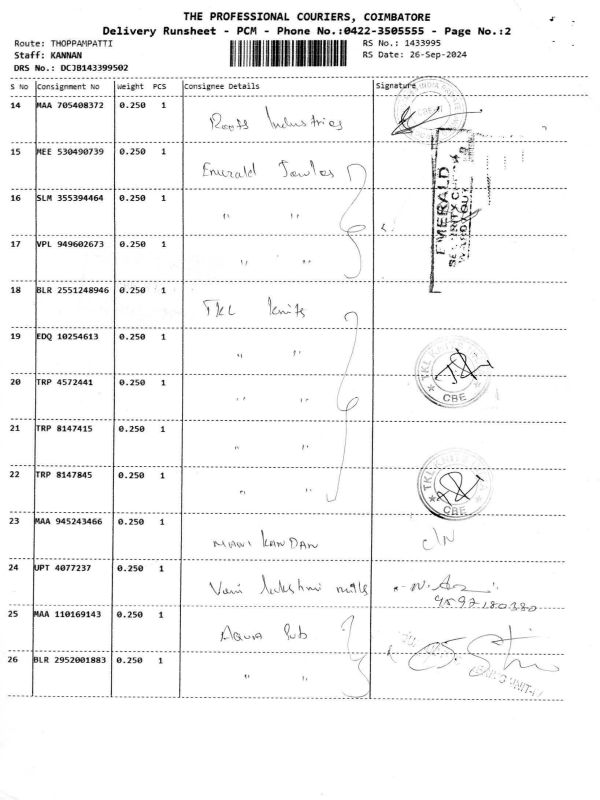 THE PROFESSIONAL COURIERS, COIMBATORE
Delivery Runsheet - PCM - Phone No.:0422-3505555 - Page No.:2
Route: THOPPAMPATTI
RS No.: 1433995
Staff: KANNAN
RS Date: 26-Sep-2024
DRS No.: DCJB143399502
S No Consignment No Weight PCS Consignee Details Signature
14 MAA 705408372 0.250 1 Roots Industries
15 MEE 530490739 0.250 1 Emerald
EMERALD
16 SLM 355394464 0.250 1 " "
17 VPL 949602673 0.250 1 " "
18 BLR 2551248946 0.250 1 TKL Knits
19 EDQ 10254613 0.250 1 " "
TKL KNITS
CBE
20 TRP 4572441 0.250 1 " "
21 TRP 8147415 0.250 1 " "
22 TRP 8147845 0.250 1 " "
TKL KNITS
CBE
23 MAA 945243466 0.250 1 MANI KANDAN C/N
24 UPT 4077237 0.250 1 Vani Lakshmi mills
25 MAA 110169143 0.250 1 Aqua Sub
26 BLR 2952001883 0.250 1 " "